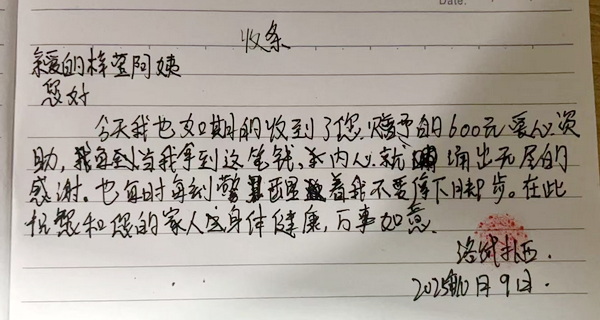 Date:
收条
亲爱的梓莹阿姨
您好
今天我也如期的收到了您赠予的600元爱心资
助,每到当我拿到这笔钱,我内心就涌出无尽的
感谢。也每时每刻警醒着我不要停下脚步。在此
祝您和您的家人身体健康,万事如意.
洛绒扎西.
2025年10月9日.